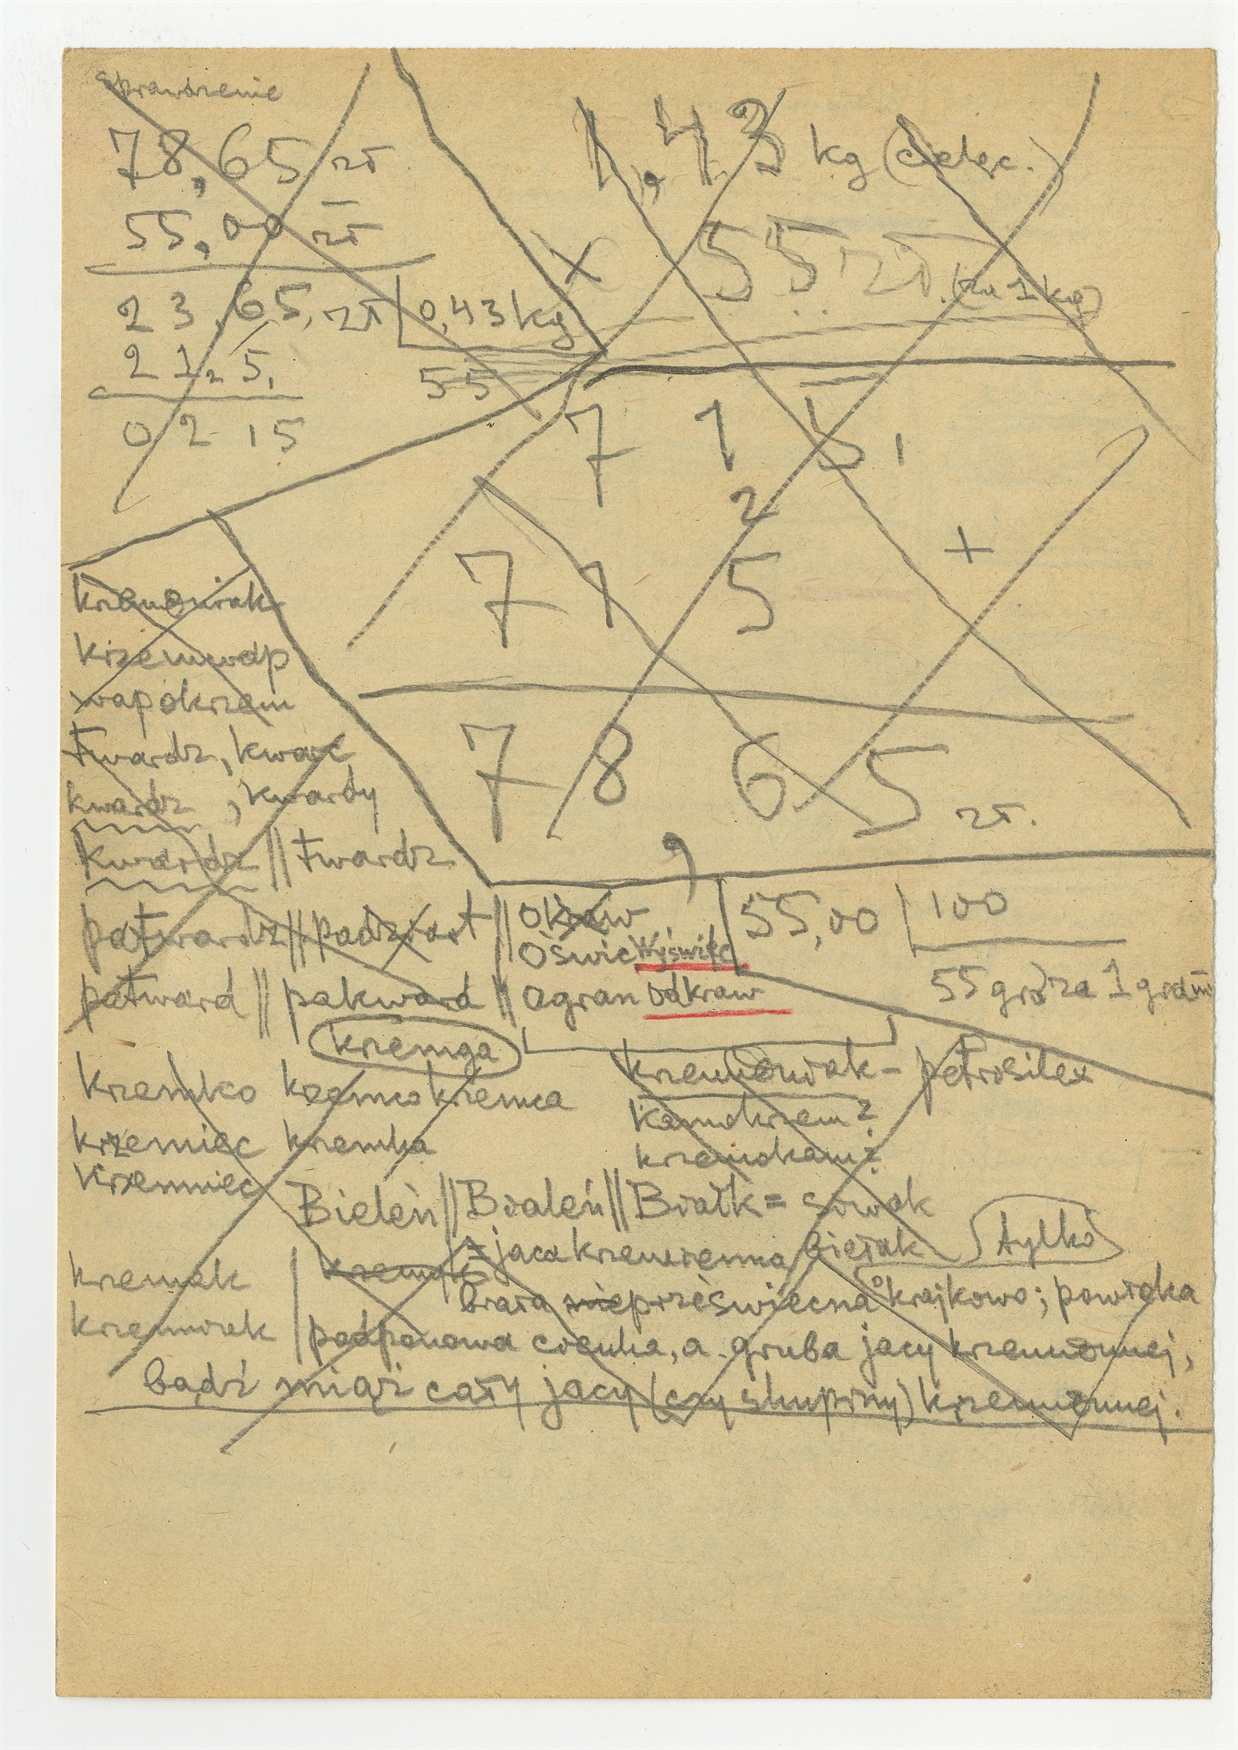 sprawdzenie
78,65 zł
55,00 zł
23,65, zł 0,43 kg
21,5,
55
0 2 15
1,43 kg (cielęc.)
× 55 zł (za 1 kg)
7 1 5,
2
7 1 5 +
7 8, 6 5 zł.
krzemwdp
wapokrzem
twardz, kwarc
kwardz, kwardy
kwardz || twardz
patwardz || padziart || okraw
oświc wyświec
patward || pakward || ogran odkraw
55,00 100
55 gr za 1 gram
krzemga
krzemko krzemco krzemca
krzemiec krzemka
krzemniec
krzemowiak - petrosilex
kamokrzem?
krzemokam?
Bieleń || Bialeń || Białk = siwak
= jaca krzemienna bielak tylko
biała nieprzeświecna krajkowo; powłoka
krzemak
krzemurek podponowa cienka, a gruba jacy krzemionnej,
bądź miąż cały jacy (czy skupiny) krzemionnej.